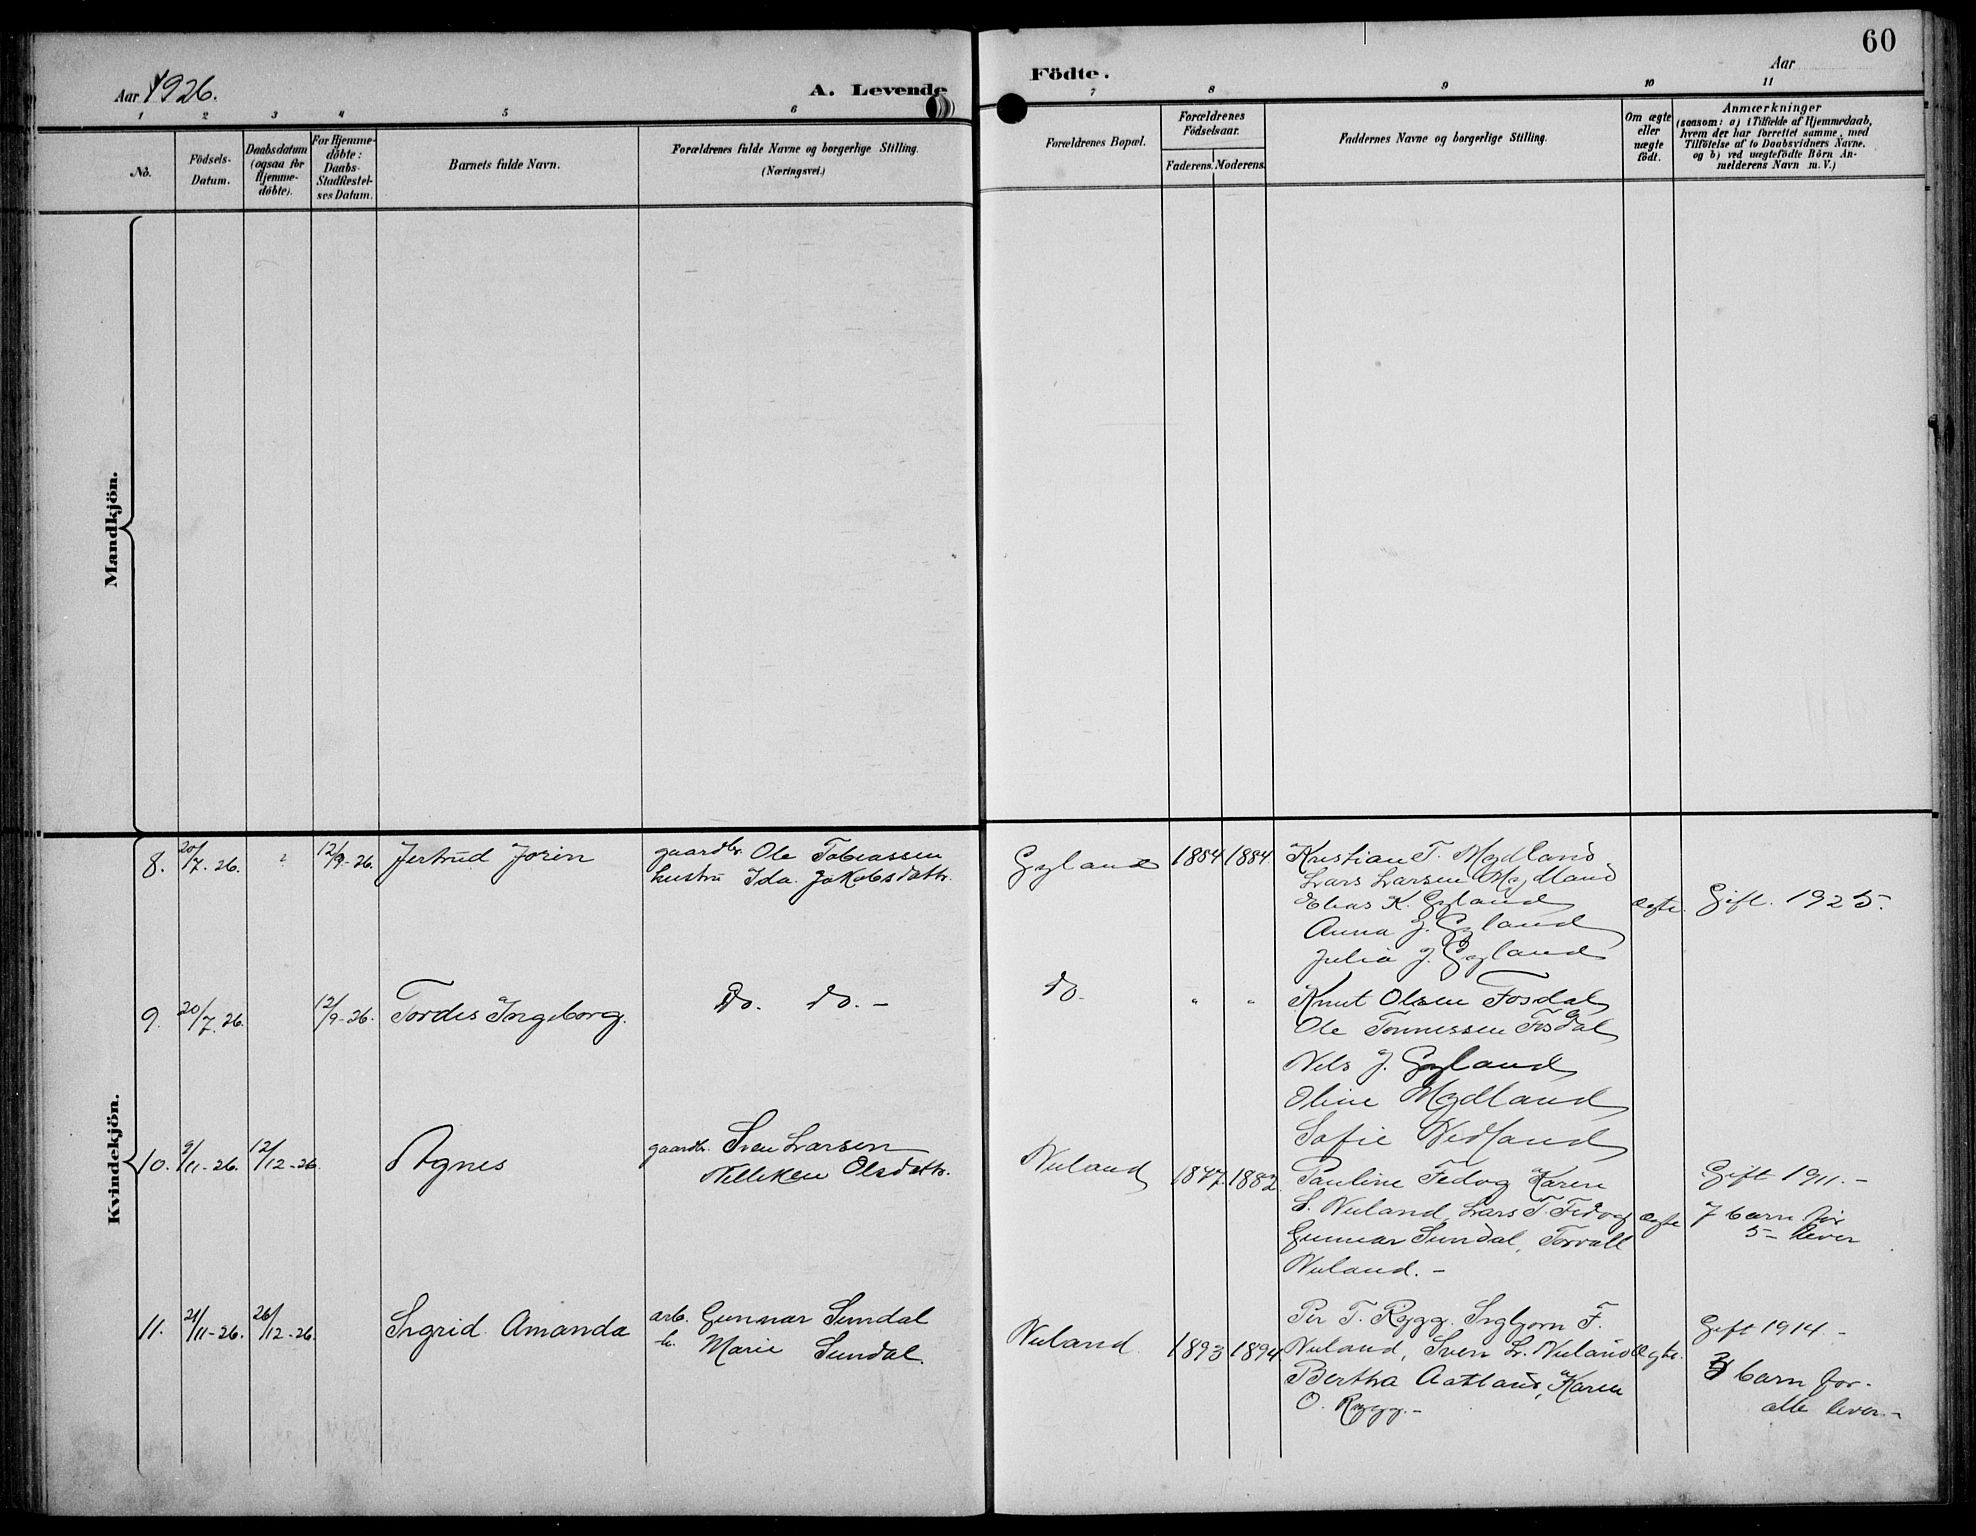 60
Aar 1926.
A. Levende
Födte.
Aar
1 2 3 4 5 6 7 8 9 10 11
No.
Födsels-
Datum.
Daabsdatum
(ogsaa for
Hjemme-
döbte).
For Hjemme-
döbte:
Daabs-
Stadfestel-
ses Datum.
Barnets fulde Navn.
Forældrenes fulde Navne og borgerlige Stilling.
(Næringsvei.)
Forældrenes Bopæl.
Forældrenes
Födselsaar.
Faderens. Moderens.
Faddernes Navne og borgerlige Stilling.
Om ægte
eller
uægte
födt.
Anmærkninger
(saasom: a) i Tilfælde af Hjemmedaab,
hvem der har forrettet samme, med
Tilföielse af to Daabsvidners Navne.
og b) ved uægtefödte Börn An-
melderens Navn m. V.)
Mandkjön.
Kvindekjön.
8. 20/7-26. 12/9-26. Jertrud Jorin
gaardbr. Ole Tobiassen
hustru Ida Jakobsdattr.
Gyland 1884 1884
Kristian T. Mydland
Lars Larsen Mydland
Elias K. Gyland
Anna J. Gyland
Julia J. Gyland
ægte. Gift. 1925.
9. 20/7.26. 12/9-26. Tordis Ingeborg.
Do. do. -
do. " "
Knut Olsen Fosdal
Ole Tønnessen Fosdal
Nils J. Gyland
Oline Mydland
Sofie Vidland
10. 9/11-26. 12/12-26. Agnes
gaardbr. Sven Larsen
Villiken Olsdattr.
Nuland 1877. 1882.
Pauline Fedog Karen
S. Nuland, Lars T. Fedog
Gunnar Sundal, Torvall
Nuland. -
ægte
Gift 1911. -
7 barn før
5 - lever
11. 21/11-26. 26/12-26. Ingrid Amanda
arb. Gunnar Sundal
h. Marie Sundal.
Nuland. 1893 1894
Per T. Rygg. Ingbjorn F.
Nuland, Sven Lr. Nuland
Bertha Aatland, Karen
O. Rygg. -
ægte.
Gift 1914 -
3 barn før-
alle lever -